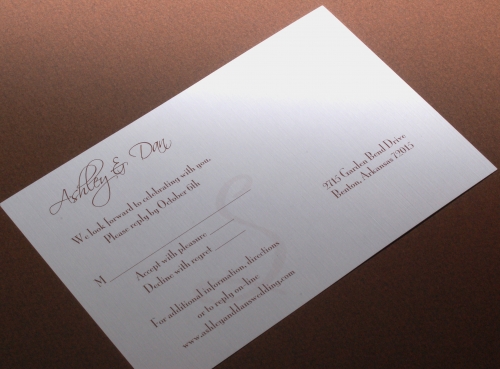 Ashley & Dan
We look forward to celebrating with you.
Please reply by October 6th
M
Accept with pleasure
Decline with regret
For additional information, directions
or to reply on-line
www.ashleyanddanswedding.com
2215 Garden Bend Drive
Benton, Arkansas 72015